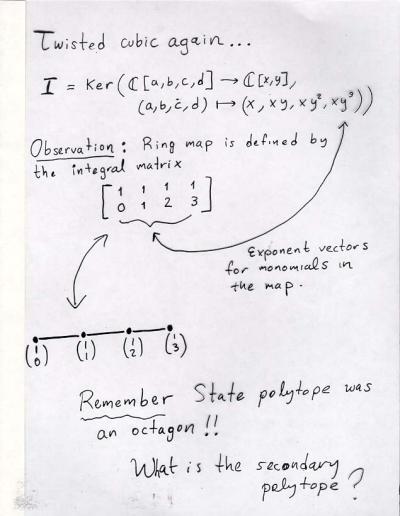 Twisted cubic again...
I = Ker(ℂ[a,b,c,d] → ℂ[x,y],
(a,b,c,d) ↦ (x, xy, xy², xy³))
Observation: Ring map is defined by
the integral matrix
[1 1 1 1
0 1 2 3]
Exponent vectors
for monomials in
the map.
(1 0) (1 1) (1 2) (1 3)
Remember State polytope was
an octagon!!
What is the secondary
polytope?